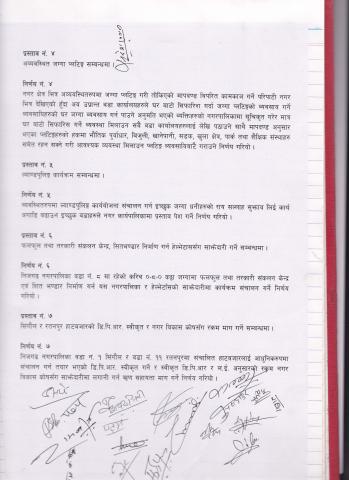 प्रस्ताव नं. ४
अव्यवस्थित जग्गा प्लटिङ्ग सम्बन्धमा ।
निर्णय नं. ४
नगर क्षेत्र भित्र अव्यवस्थितरुपमा जग्गा प्लटिङ्ग गरी तोकिएको मापदण्ड विपरित कामकाज गर्ने परिपाटी नगर
भित्र देखिएको हुँदा अब उप्रान्त वडा कार्यालयहरुले घर बाटो सिफारिस गर्दा जग्गा प्लटिङ्गको व्यवसाय गर्ने
व्यवसायिहरुको घर जग्गा व्यवसाय गर्न पाउने अनुमति भएको व्यक्तिहरुको नगरपालिकामा सुचिकृत गरेर मात्र
घर बाटो सिफारिस गर्ने व्यवस्था मिलाउन सबै वडा कार्यालयहरुलाई लेखि पठाउने साथै मापदण्ड अनुसार
भएका प्लटिङ्गहरुको हकमा भौतिक पूर्वाधार, बिजुली, खानेपानी, सडक, खुला क्षेत्र, पार्क तथा शैक्षिक संस्थाहरु
समेत रहन सक्ने गरी आवश्यक व्यवस्था मिलाउन प्लटिङ्ग व्यवसायिबाटै गराउने निर्णय गरियो ।
प्रस्ताव नं. ५
ल्याण्डपुलिङ्ग कार्यक्रम सम्बन्धमा ।
निर्णय नं. ५
व्यवस्थितरुपमा ल्याण्डपुलिङ्ग कार्ययोजना संचालन गर्न इच्छुक जग्गा धनीहरुको राय सल्लाह सुझाव लिई कार्य
अगाडि बढाउन इच्छुक वडाहरुले नगर कार्यपालिकामा प्रस्ताव पेश गर्ने निर्णय गरियो ।
प्रस्ताव नं. ६
फलफूल तथा तरकारी संकलन केन्द्र, शितभण्डार निर्माण गर्न हेल्भेटाससँग साझेदारी गर्ने सम्बन्धमा ।
निर्णय नं. ६
निजगढ नगरपालिका वडा नं. ८ मा रहेको करिब ०-८-० कठ्ठा जग्गामा फलफूल तथा तरकारी संकलन केन्द्र
एवं शित भण्डार निर्माण गर्न यस नगरपालिका र हेल्भेटाँसको साझेदारीमा कार्यक्रम संचालन गर्ने निर्णय
गरियो ।
प्रस्ताव नं. ७
सिगौल र रतनपुर हाटबजारको डि.पि.आर. स्वीकृत र नगर विकास कोषसँग रकम माग गर्ने सम्बन्धमा ।
निर्णय नं. ७
निजगढ नगरपालिका वडा नं. १ सिगौल र वडा नं. ११ रतनपुरमा संचालित हाटबजारलाई आधुनिकरुपमा
संचालन गर्न तयार भएको डि.पि.आर. स्वीकृत गर्ने र स्वीकृत डि.पि.आर र ल.ई. अनुसारको रकम नगर
विकास कोषसँग साझेदारीमा लगानी गर्न ऋण सहायता माग गर्ने निर्णय गरियो ।